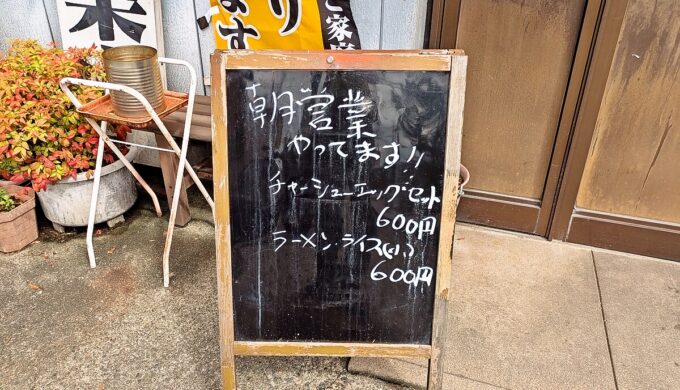 ます
ご家庭
朝営業
やってます!!
チャーシューエッグセット
600円
ラーメン・ライス(小)
600円